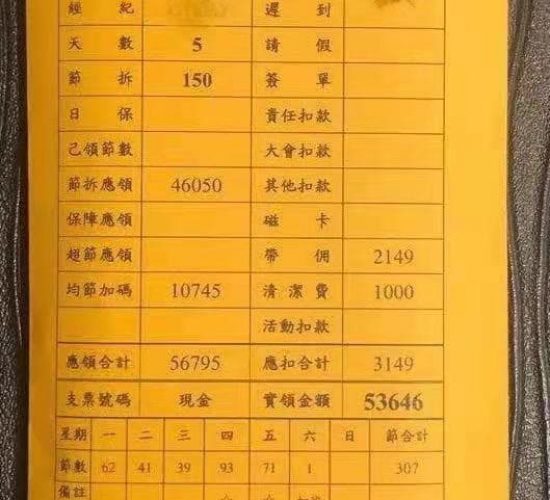 經紀 遲到
天數 5 請假
節拆 150 簽單
日保 責任扣款
已領節數 大會扣款
節拆應領 46050 其他扣款
保障應領 磁卡
超節應領 帶佣 2149
均節加碼 10745 清潔費 1000
活動扣款
應領合計 56795 應扣合計 3149
支票號碼 現金 實領金額 53646
星期 一 二 三 四 五 六 日 節合計
節數 62 41 39 93 71 1 307
備註